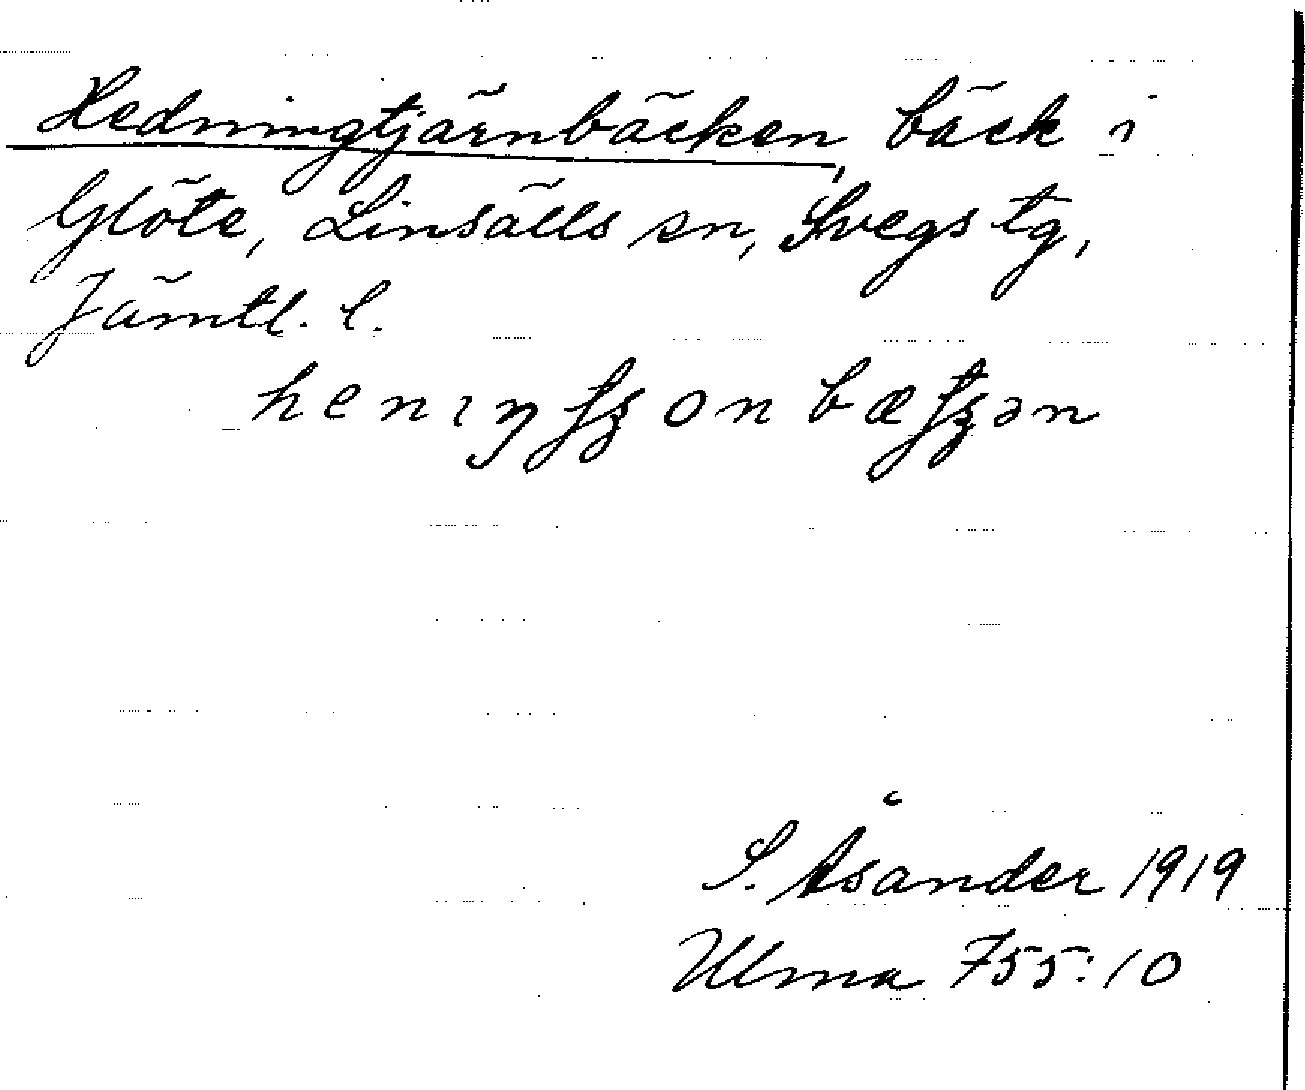 Hedningtjärnbäcken, bäck i
Glöte, Linsälls sn, Svegs tg,
Jämtl. l.
S. Åsander 1919
Ulma 755:10